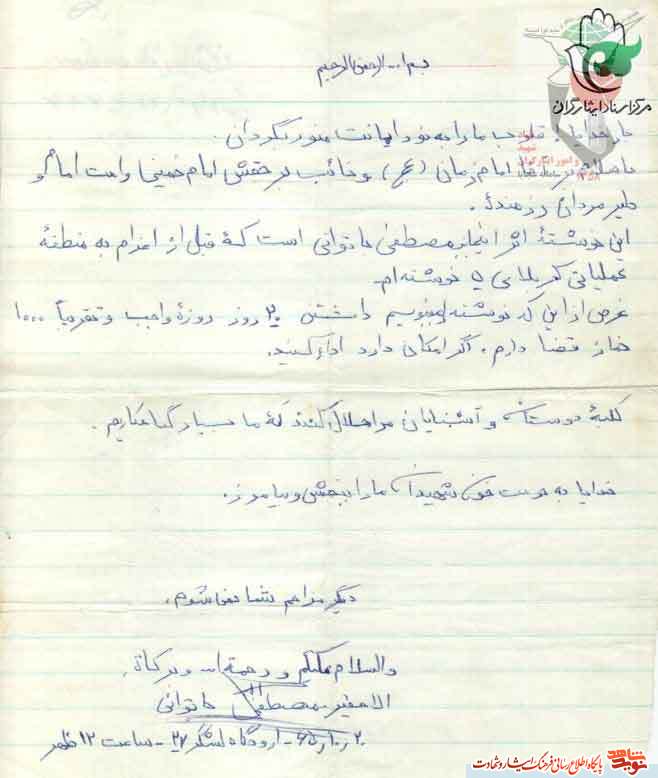 مرکز اسناد ایثارگران
بسم ا... الرحمن الرحیم
بار خدایا، قلوب ما را به نور ایمانت منور بگردان.
با سلام بر امام زمان (عج) و نائب بر حقش امام خمینی و امت امام و
دلیر مردان رزمنده.
این نوشتهٔ اثر اینجانب مصطفی خاتوانی است که قبل از اعزام به منطقهٔ
عملیاتی کربلای ۵ نوشته‌ام.
غرض از این که نوشته بنویسم داشتن ۲۰ روز روزهٔ واجب و تقریباً ۱۰۰۰
نماز قضا دارم، اگر امکان دارد اداء کنید.
کلیهٔ دوستان و آشنایان مرا حلال کنند که ما بسیار گناهکاریم.
خدایا به حرمت خون شهیدان ما را ببخش و بیامرز.
دیگر مزاحم شما نمی‌شوم.
والسلام علیکم و رحمة اله و برکاة
الاحقر مصطفی خاتوانی
۲۰/۱۰/۶۵ - اردوگاه لشگر ۲۷ - ساعت ۱۲ ظهر
نوید شاهد
پایگاه اطلاع رسانی فرهنگ ایثار و شهادت